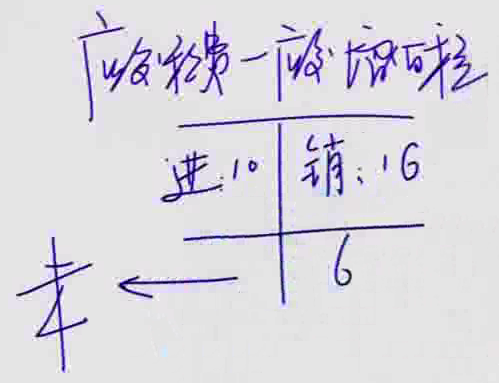 应交税费一应交增值税
进:10 销:16
6
未 ←